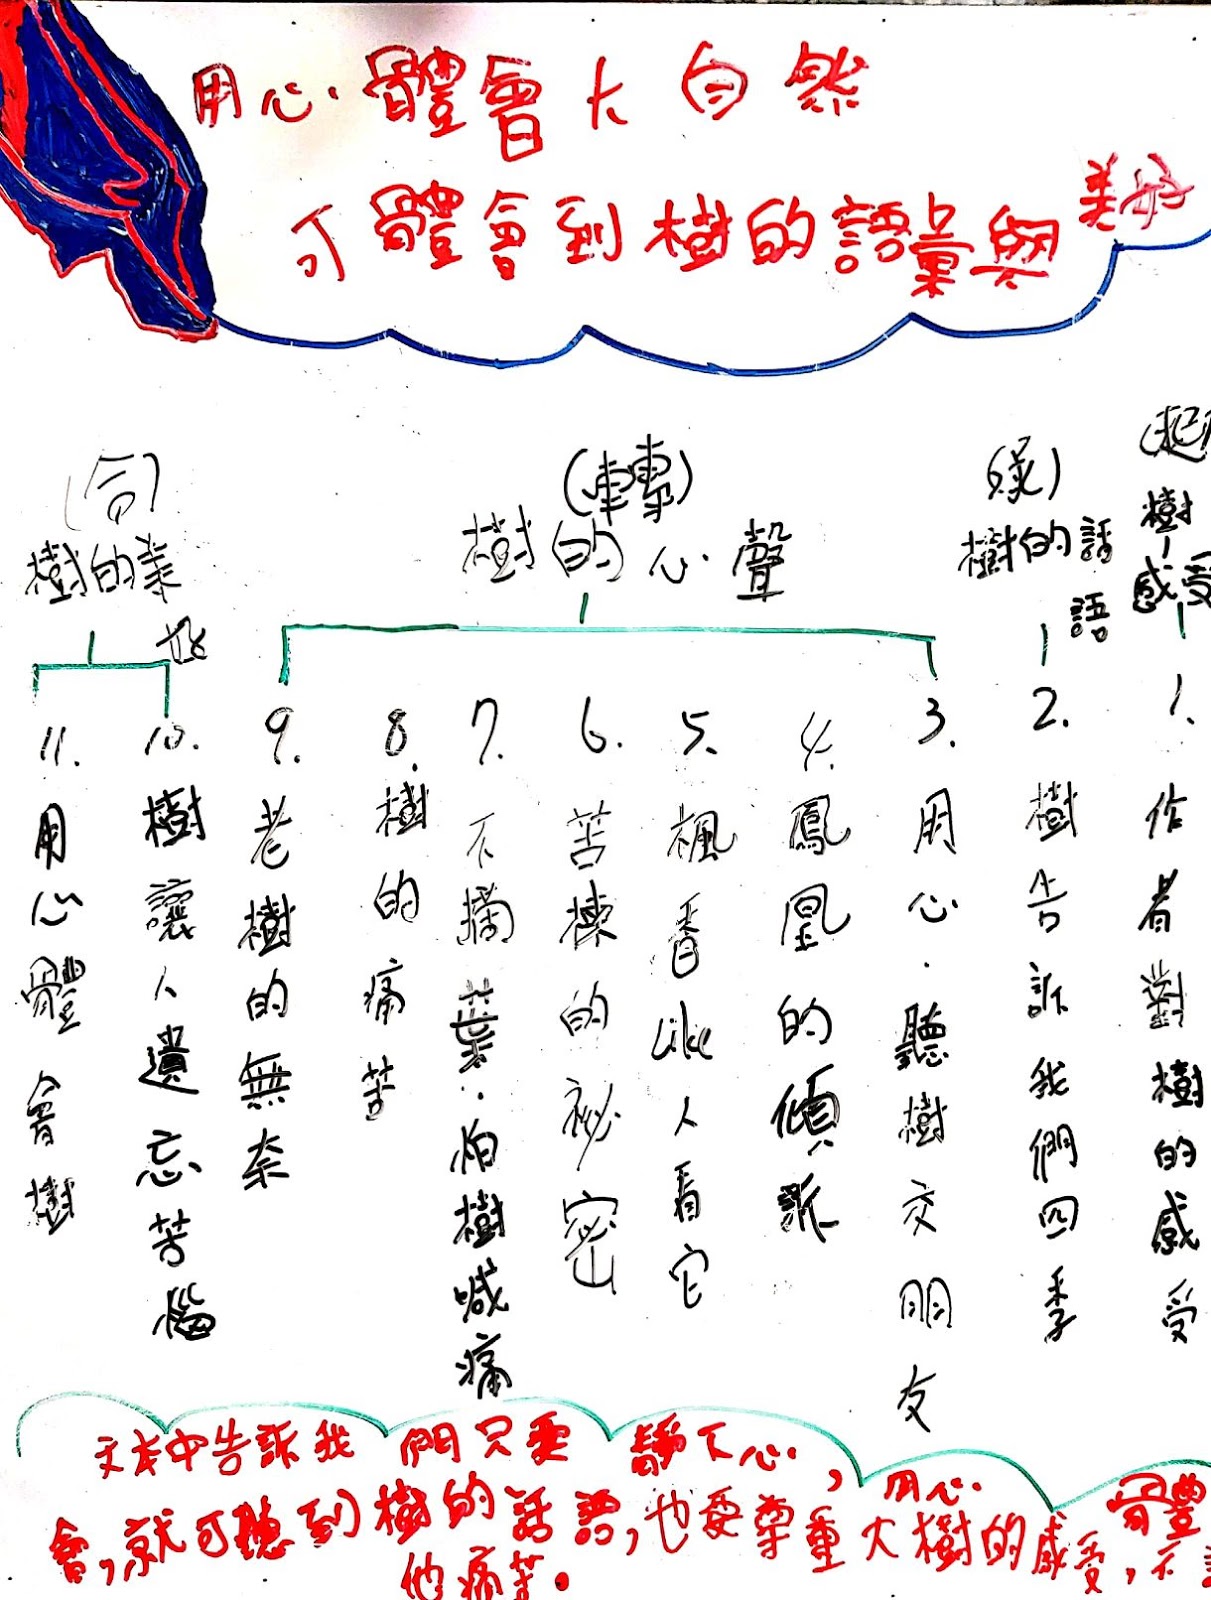 用心體會大自然
可體會到樹的語彙與美好
(起
樹感受
1.作者對樹的感受
樹的話語
2.樹告訴我們四季
(轉)
樹的心聲
3.用心聽樹交朋友
4.鳳凰的傾訴
5.楓香like人看它
6.苦楝的祕密
7.不摘葉怕樹喊痛
8.樹的痛苦
9.老樹的無奈
(合)
樹的美好
10.樹讓人遺忘苦惱
11.用心體會樹
文本中告訴我們只要靜下心,用心體
會,就可聽到樹的話語,也要尊重大樹的感受,不
他痛苦。